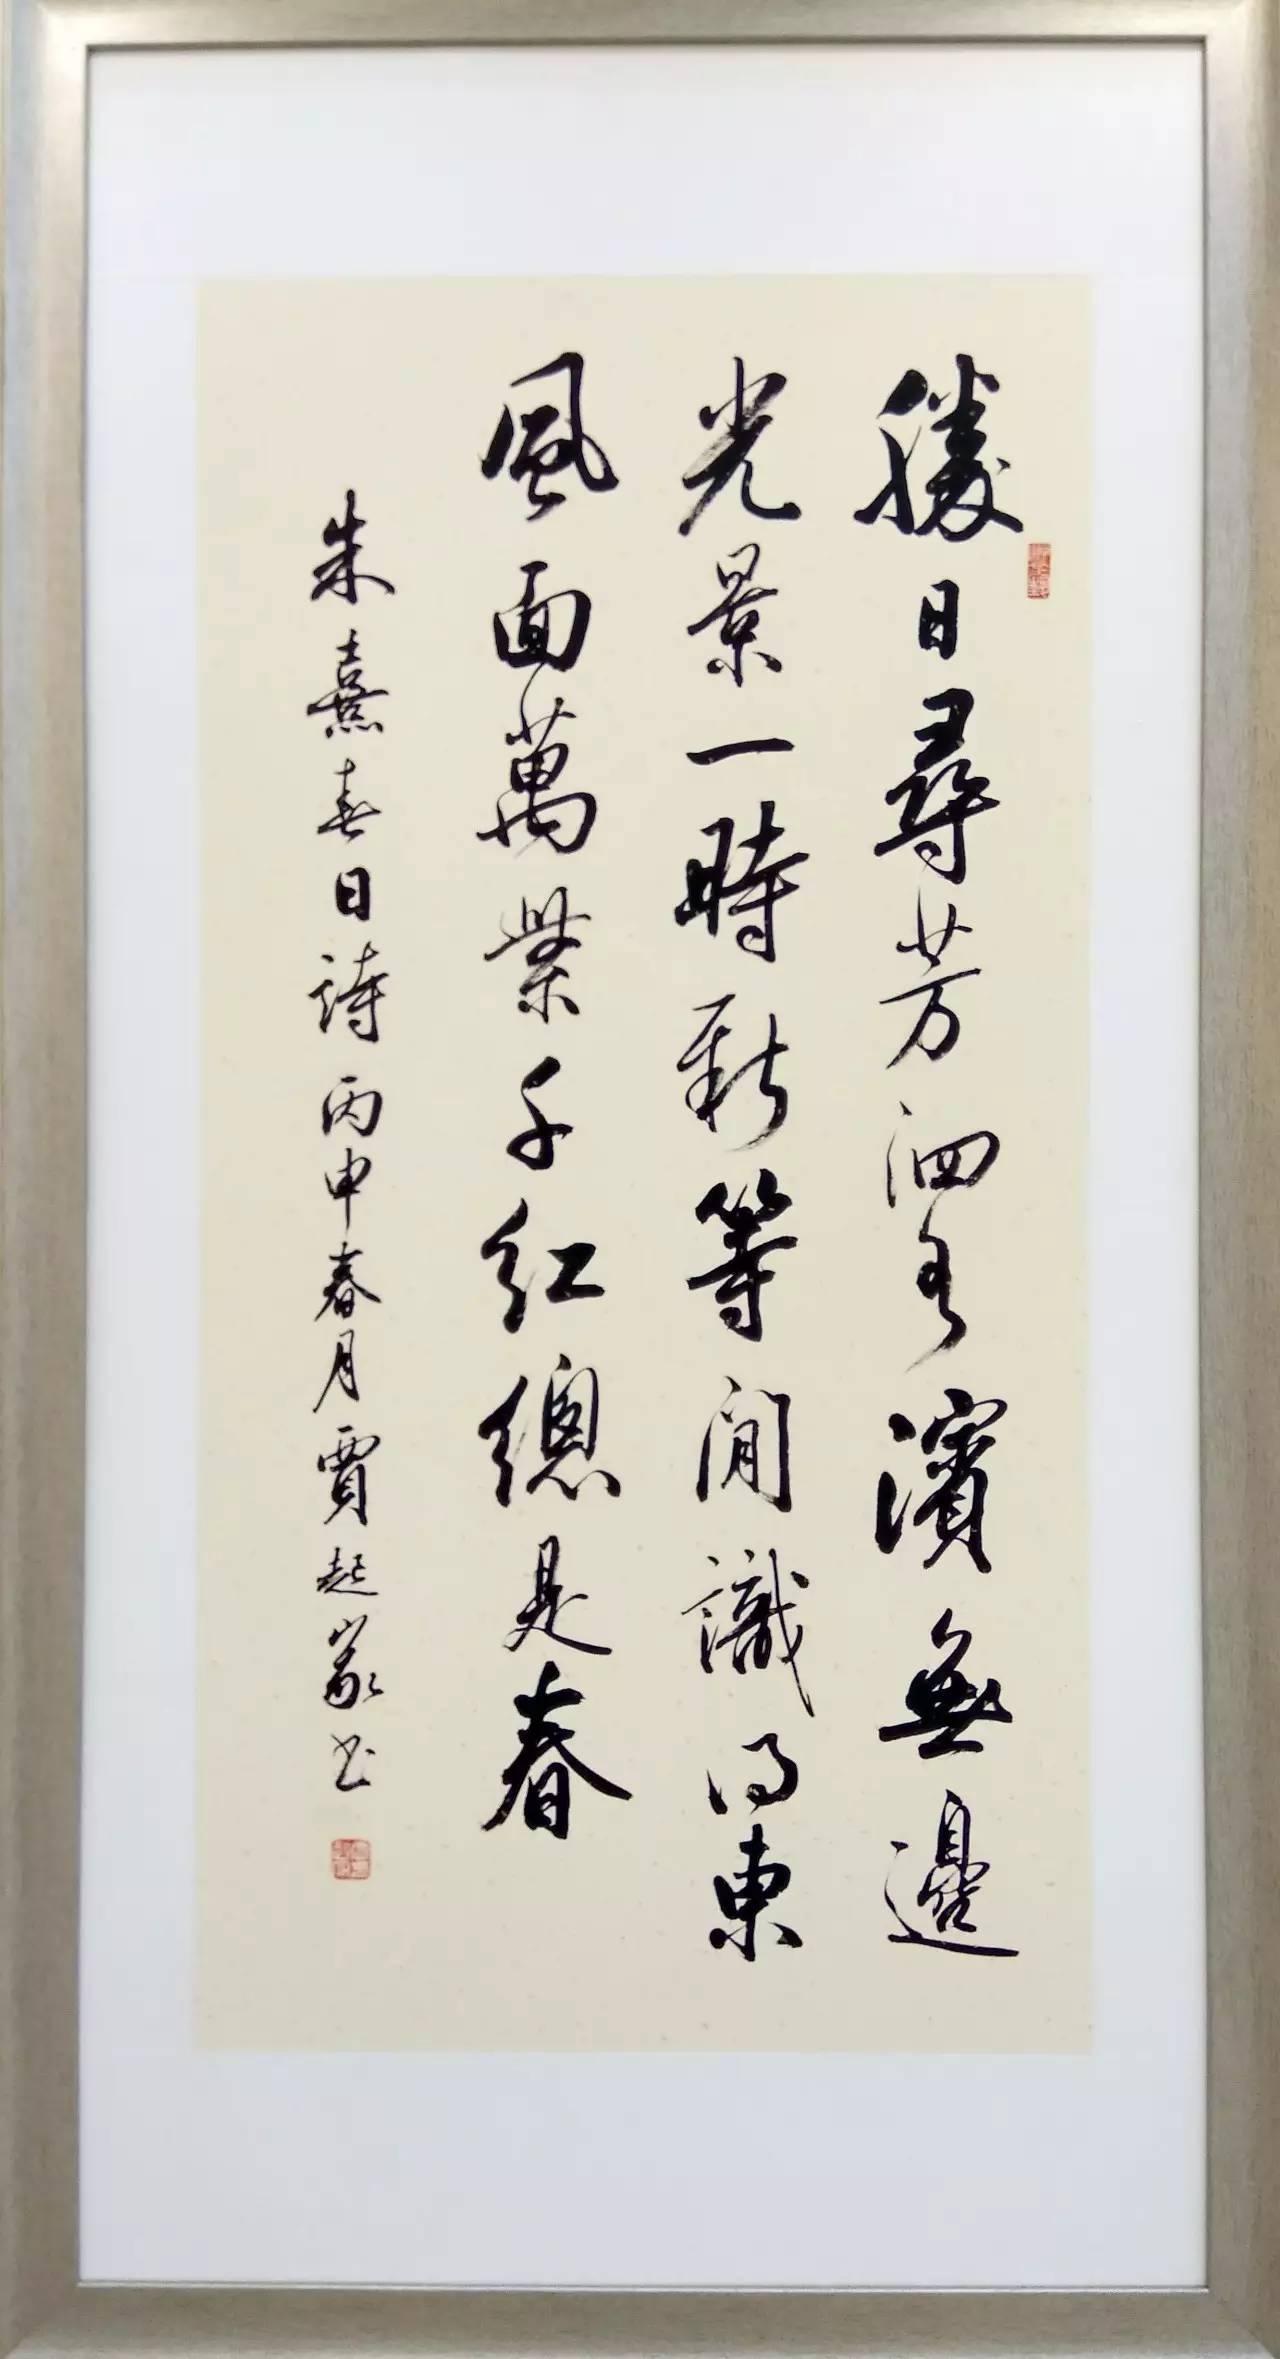 勝日尋芳泗水濱無邊
光景一時新等閒識得東
風面萬紫千紅總是春
朱熹春日詩丙申春月賈起书